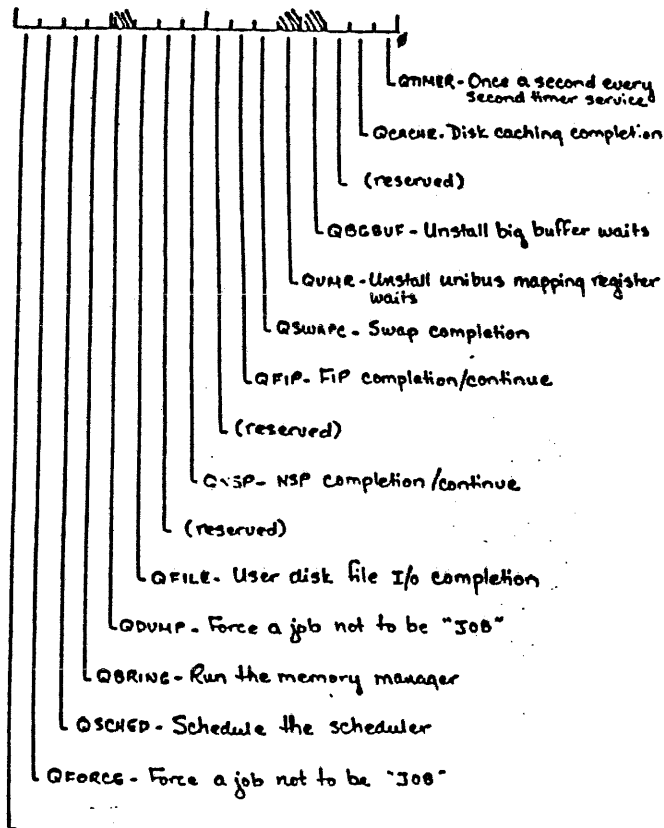 QTIMER - Once a second every
second timer service
QCACHE - Disk caching completion
(reserved)
QBGBUF - Unstall big buffer waits
QUMR - Unstall unibus mapping register
waits
QSWAPC - Swap completion
QFIP - FIP completion/continue
(reserved)
QNSP - NSP completion/continue
(reserved)
QFILE - User disk file I/O completion
QDUMP - Force a job not to be "JOB"
QBRING - Run the memory manager
QSCHED - Schedule the scheduler
QFORCE - Force a job not to be "JOB"